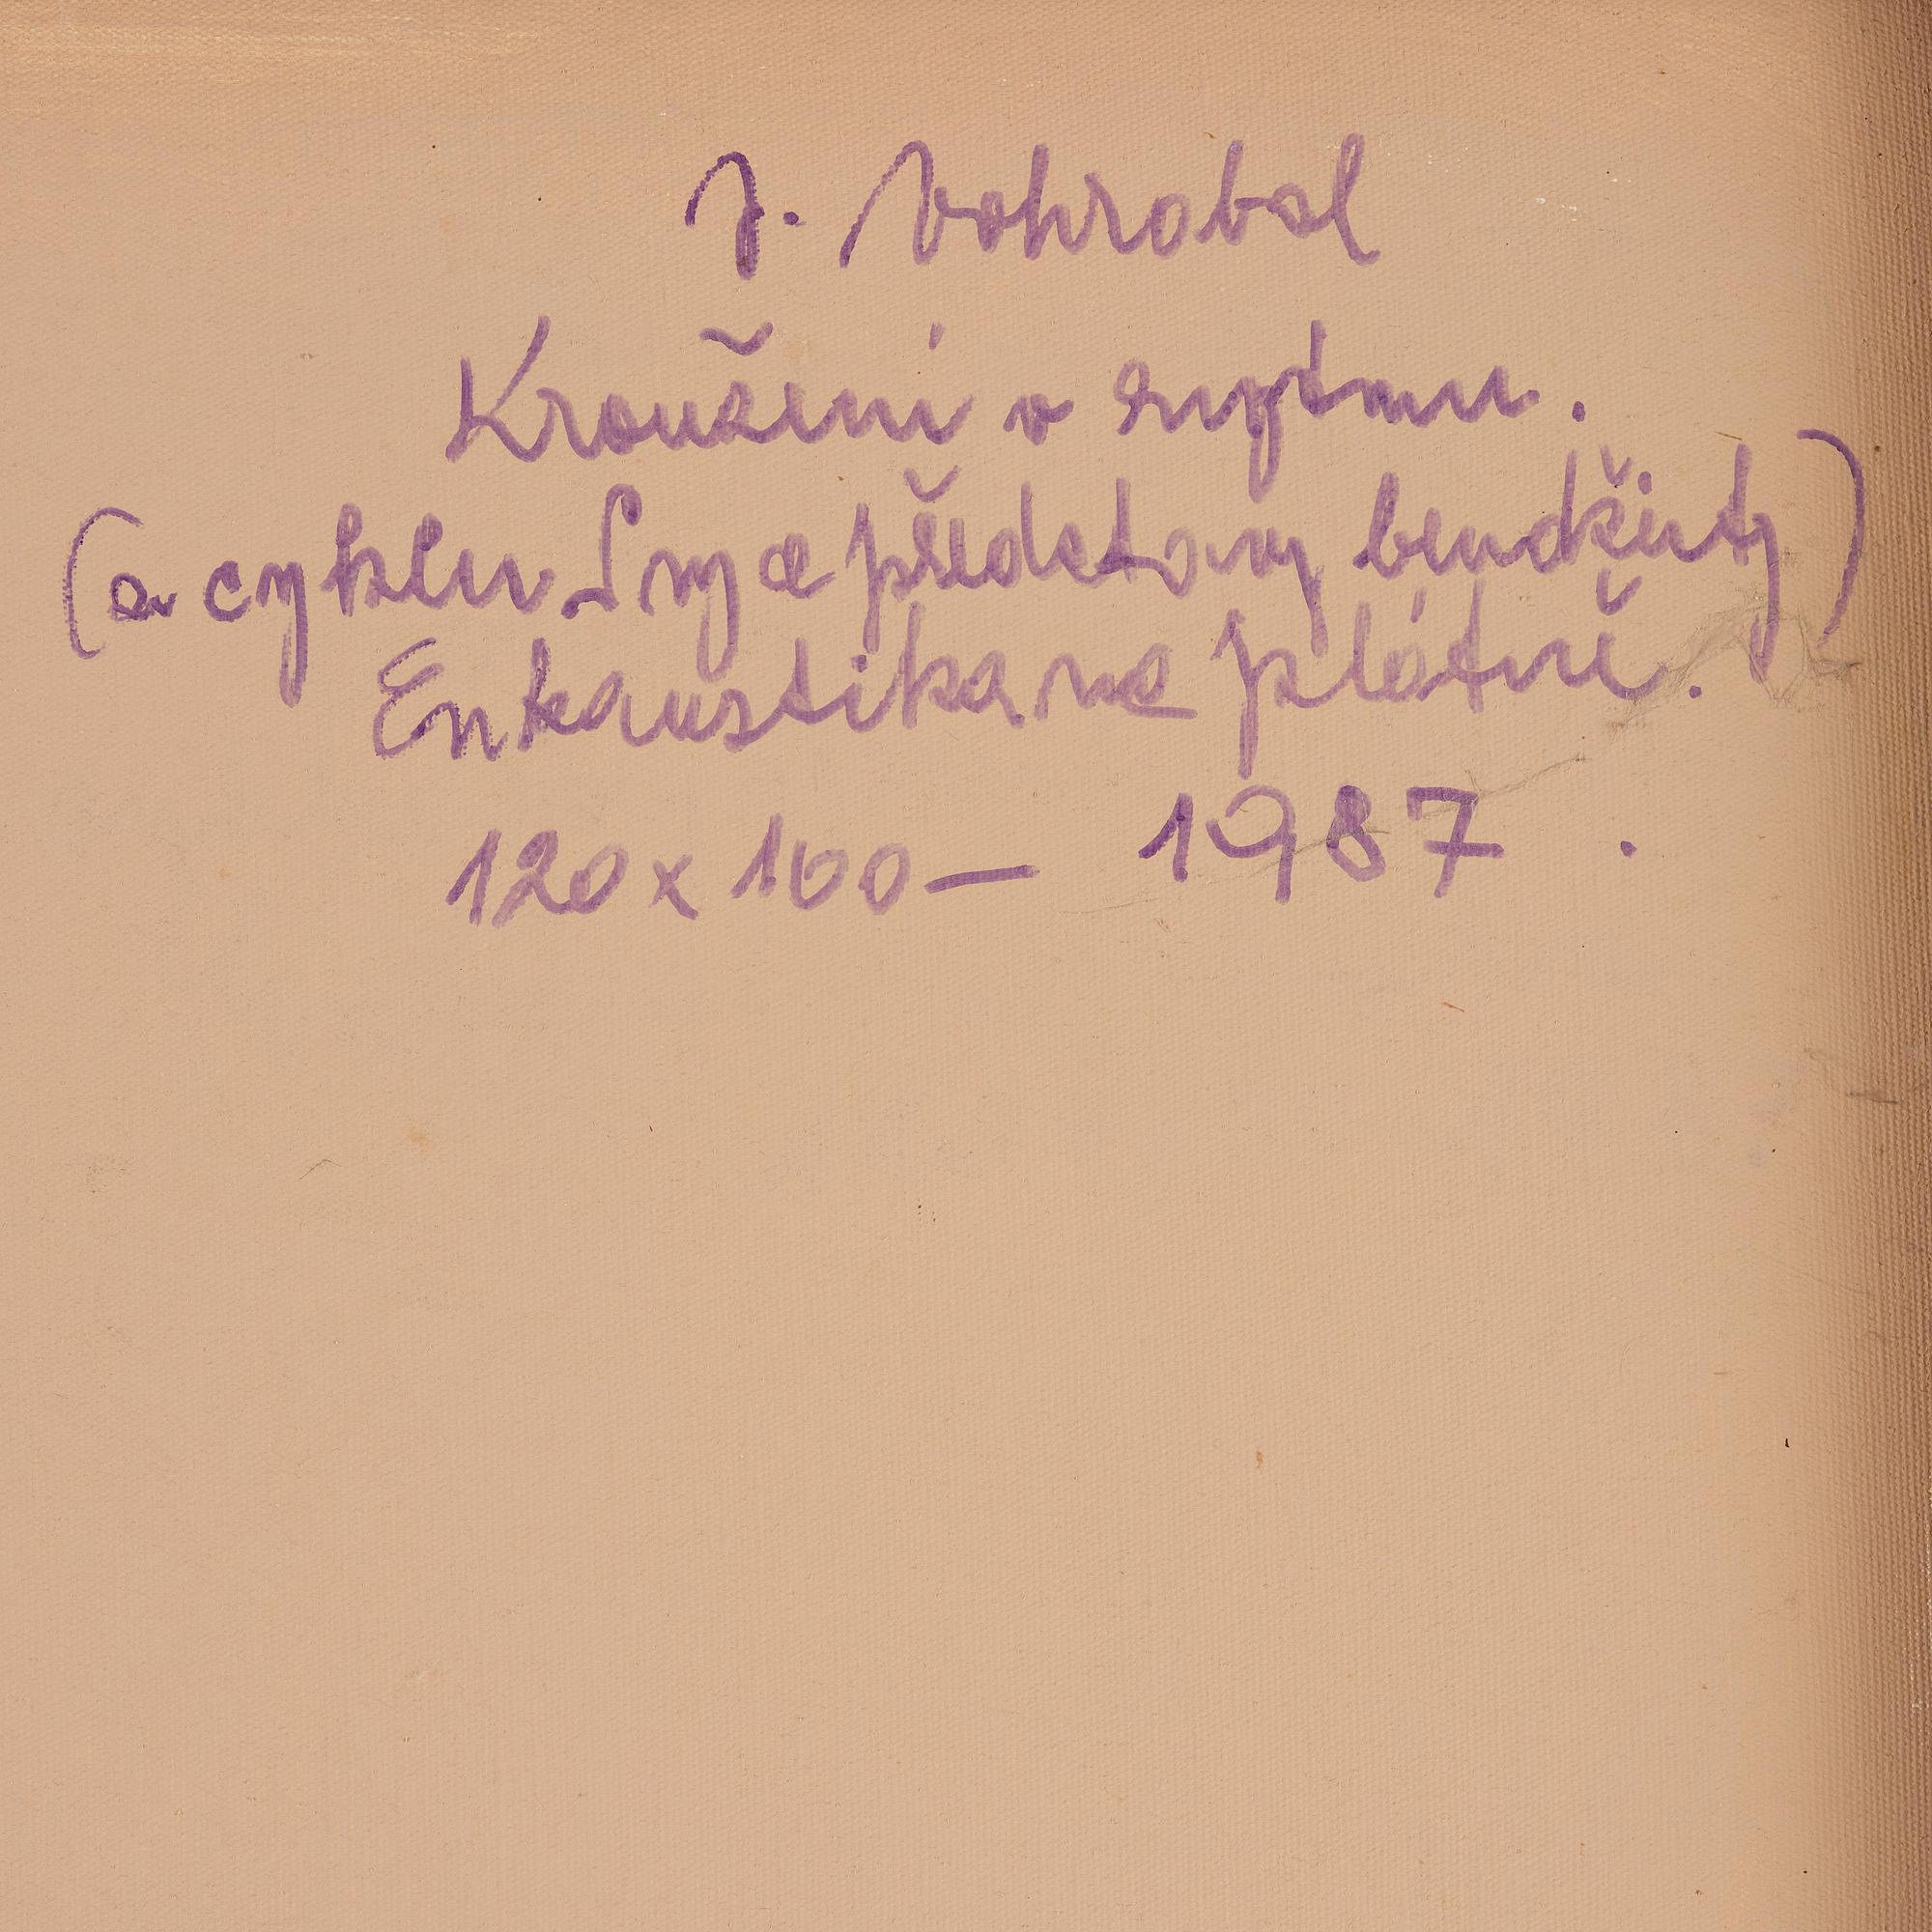 J. Vohrabal
Kroužení v rytmu.
(z cyklu Sny a představy bendžisty)
Enkaustika na plátně.
120 x 100 — 1987 .